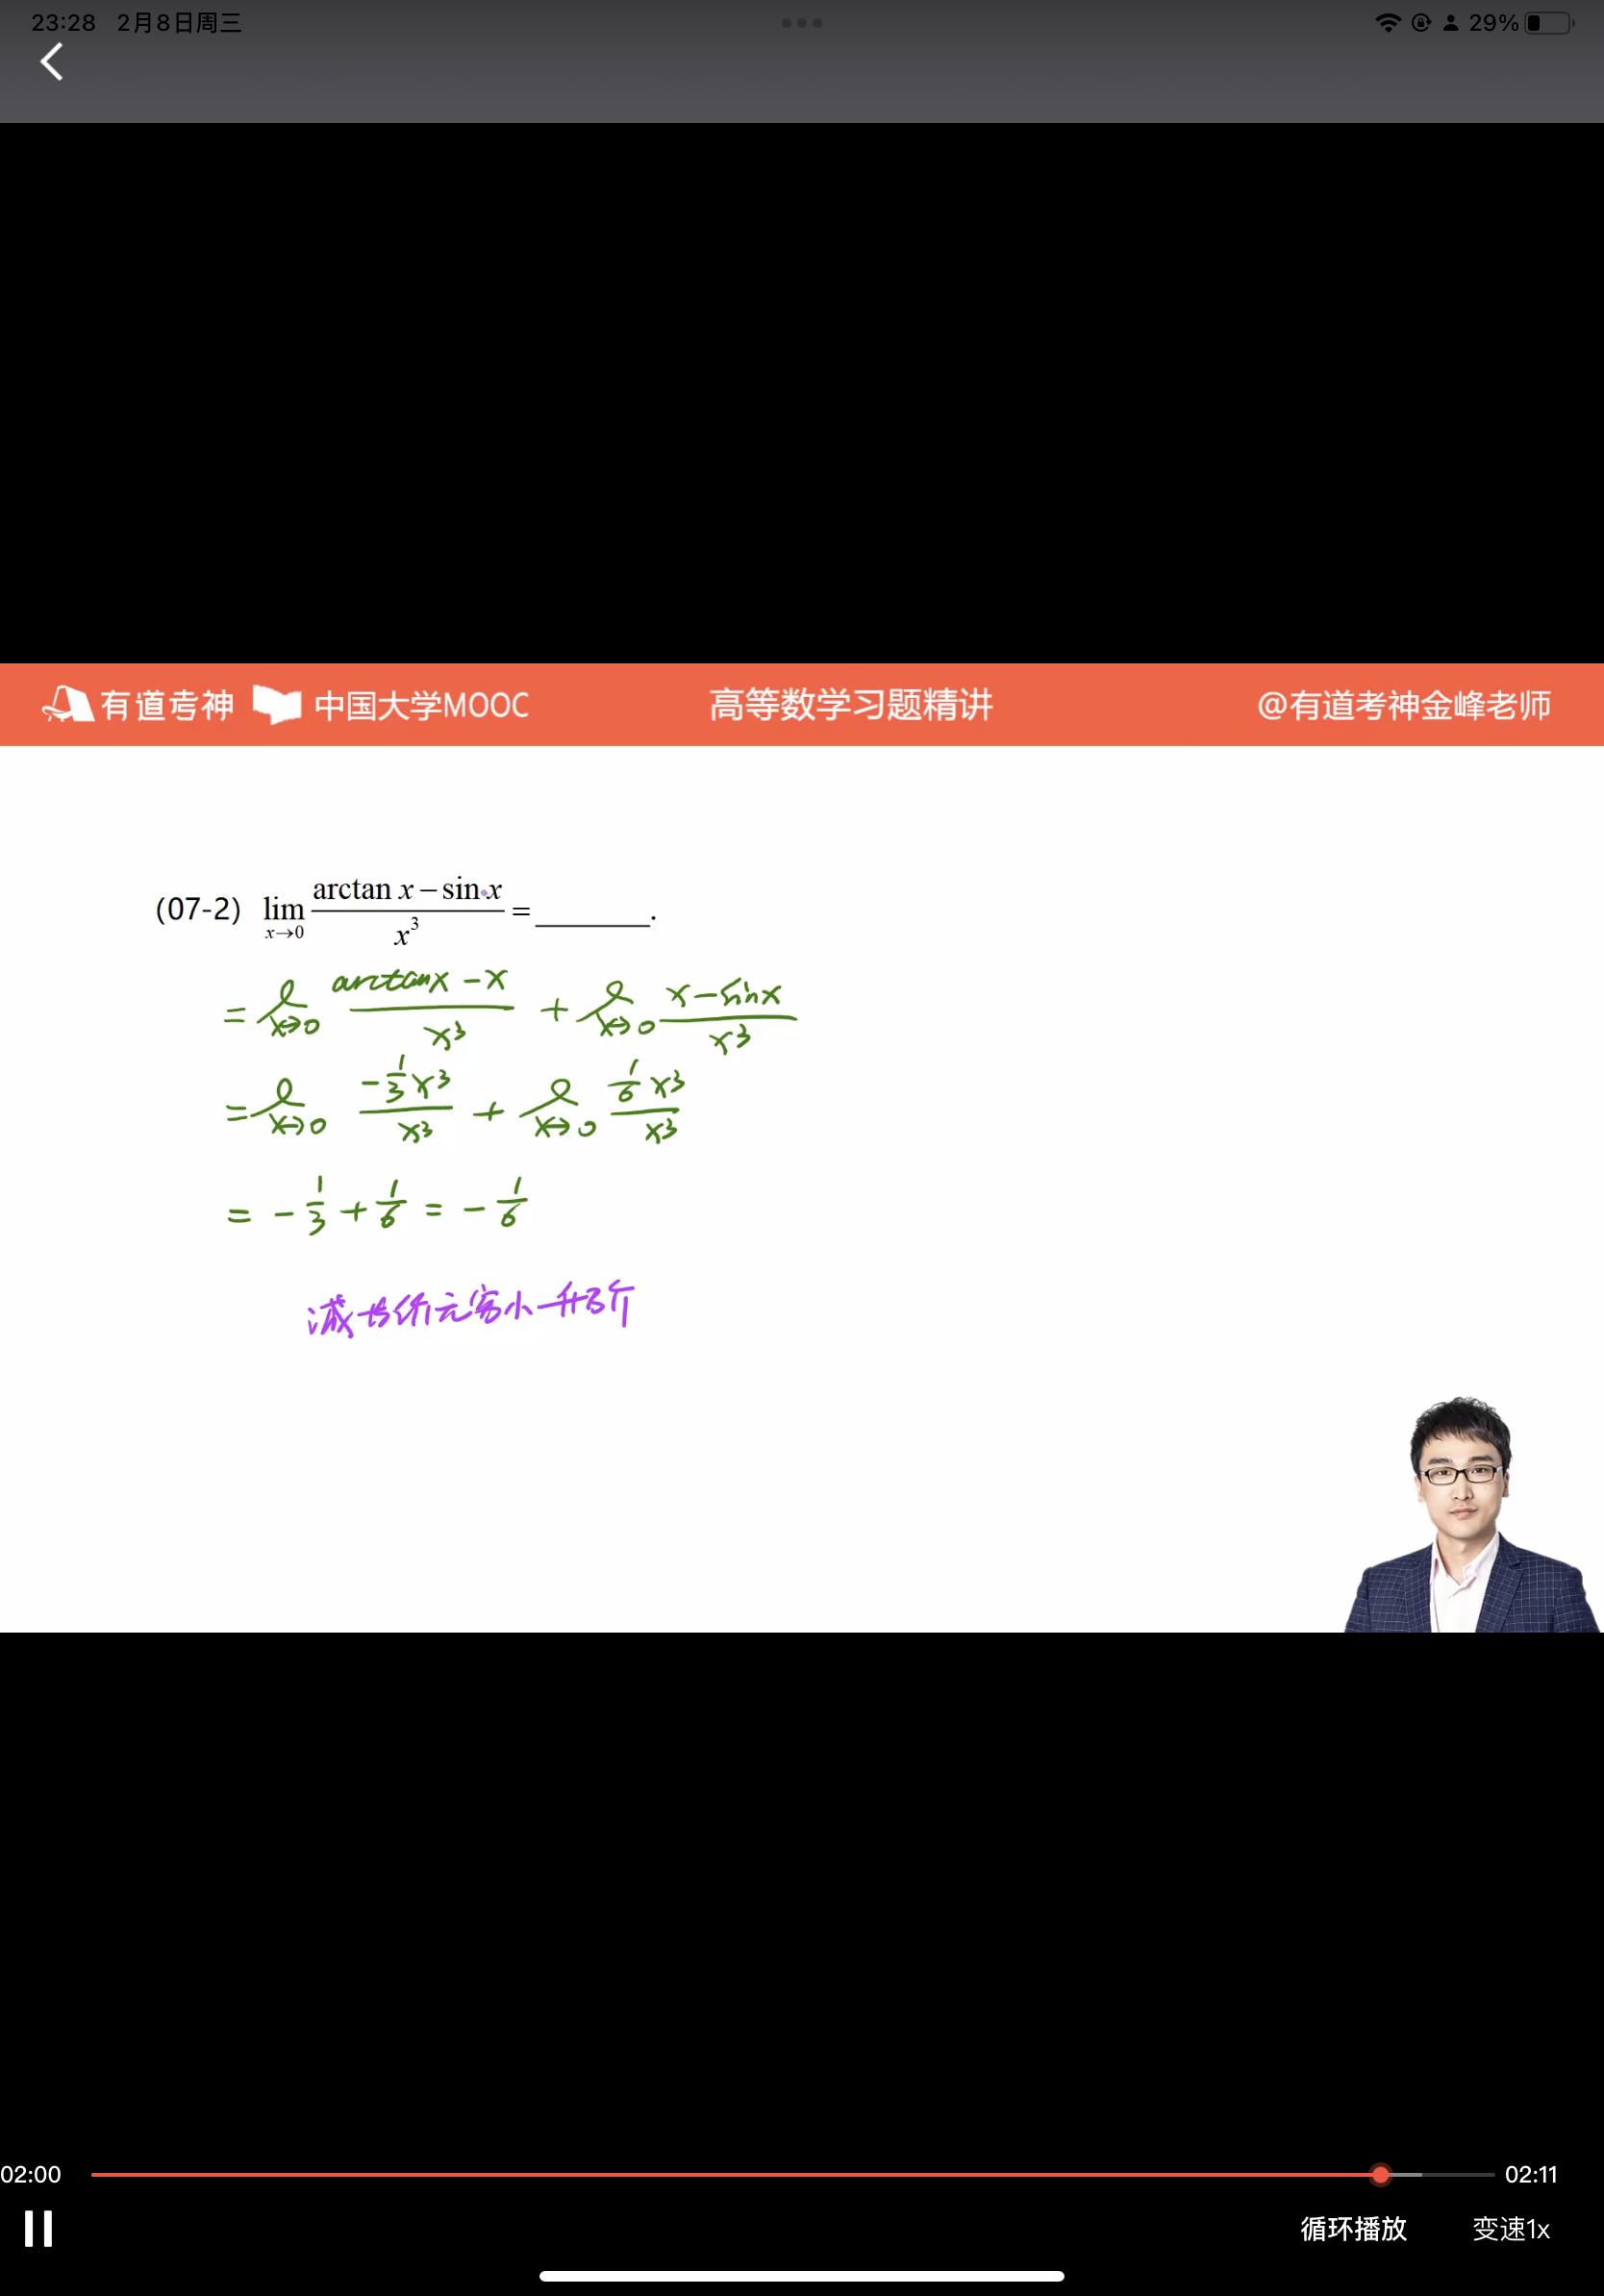 23:28 2月8日周三
29%
有道考神 中国大学MOOC 高等数学习题精讲 @有道考神金峰老师
(07-2) lim x→0 (arctan x − sin x)/x³ = ________.
= lim x→0 (arctanx − x)/x³ + lim x→0 (x − sinx)/x³
= lim x→0 (−1/3 x³)/x³ + lim x→0 (1/6 x³)/x³
= −1/3 + 1/6 = −1/6
小升3个
02:00 02:11
循环播放 变速1x